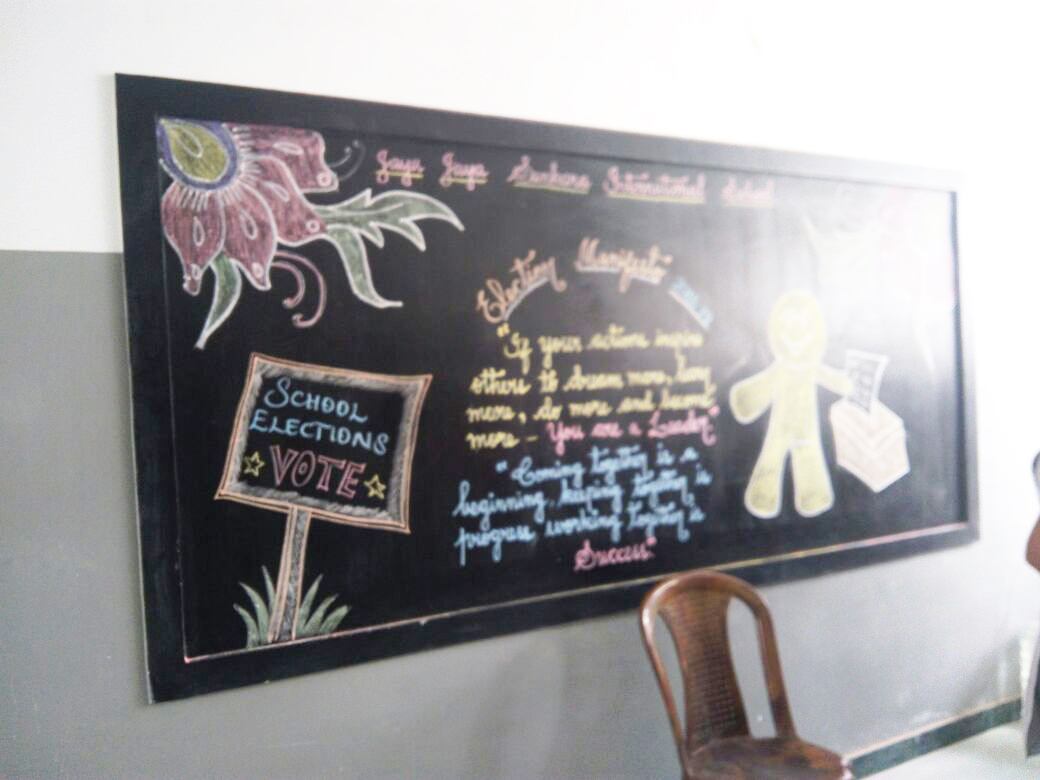 Jaya Jaya Sankara International School
Election Manifesto
"If your actions inspire
others to dream more, learn
more, do more and become
more - You are a Leader"
"Coming together is a
beginning, keeping together is
progress working together is
Success"
SCHOOL
ELECTIONS
VOTE